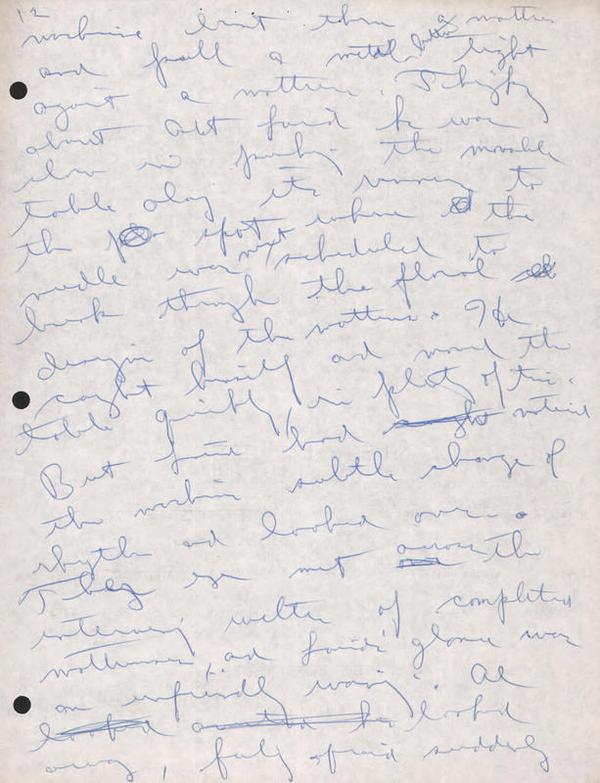 12
machine lent then a mattress
and pull a metal button tight
against a mattress. Thinking
about Alt found he was
slow in pushing the movable
table along its runway to
the spot where the
needle was next scheduled to
break through the floral
design of the mattress. He
caught himself and moved the
table quickly, in plenty of time.
But had noticed
the machine subtle change of
rhythm and looked over.
They eyes met across the
intervening welter of completed
mattresses, and glance was
an unfriendly warning. Al
looked
away, fully afraid suddenly